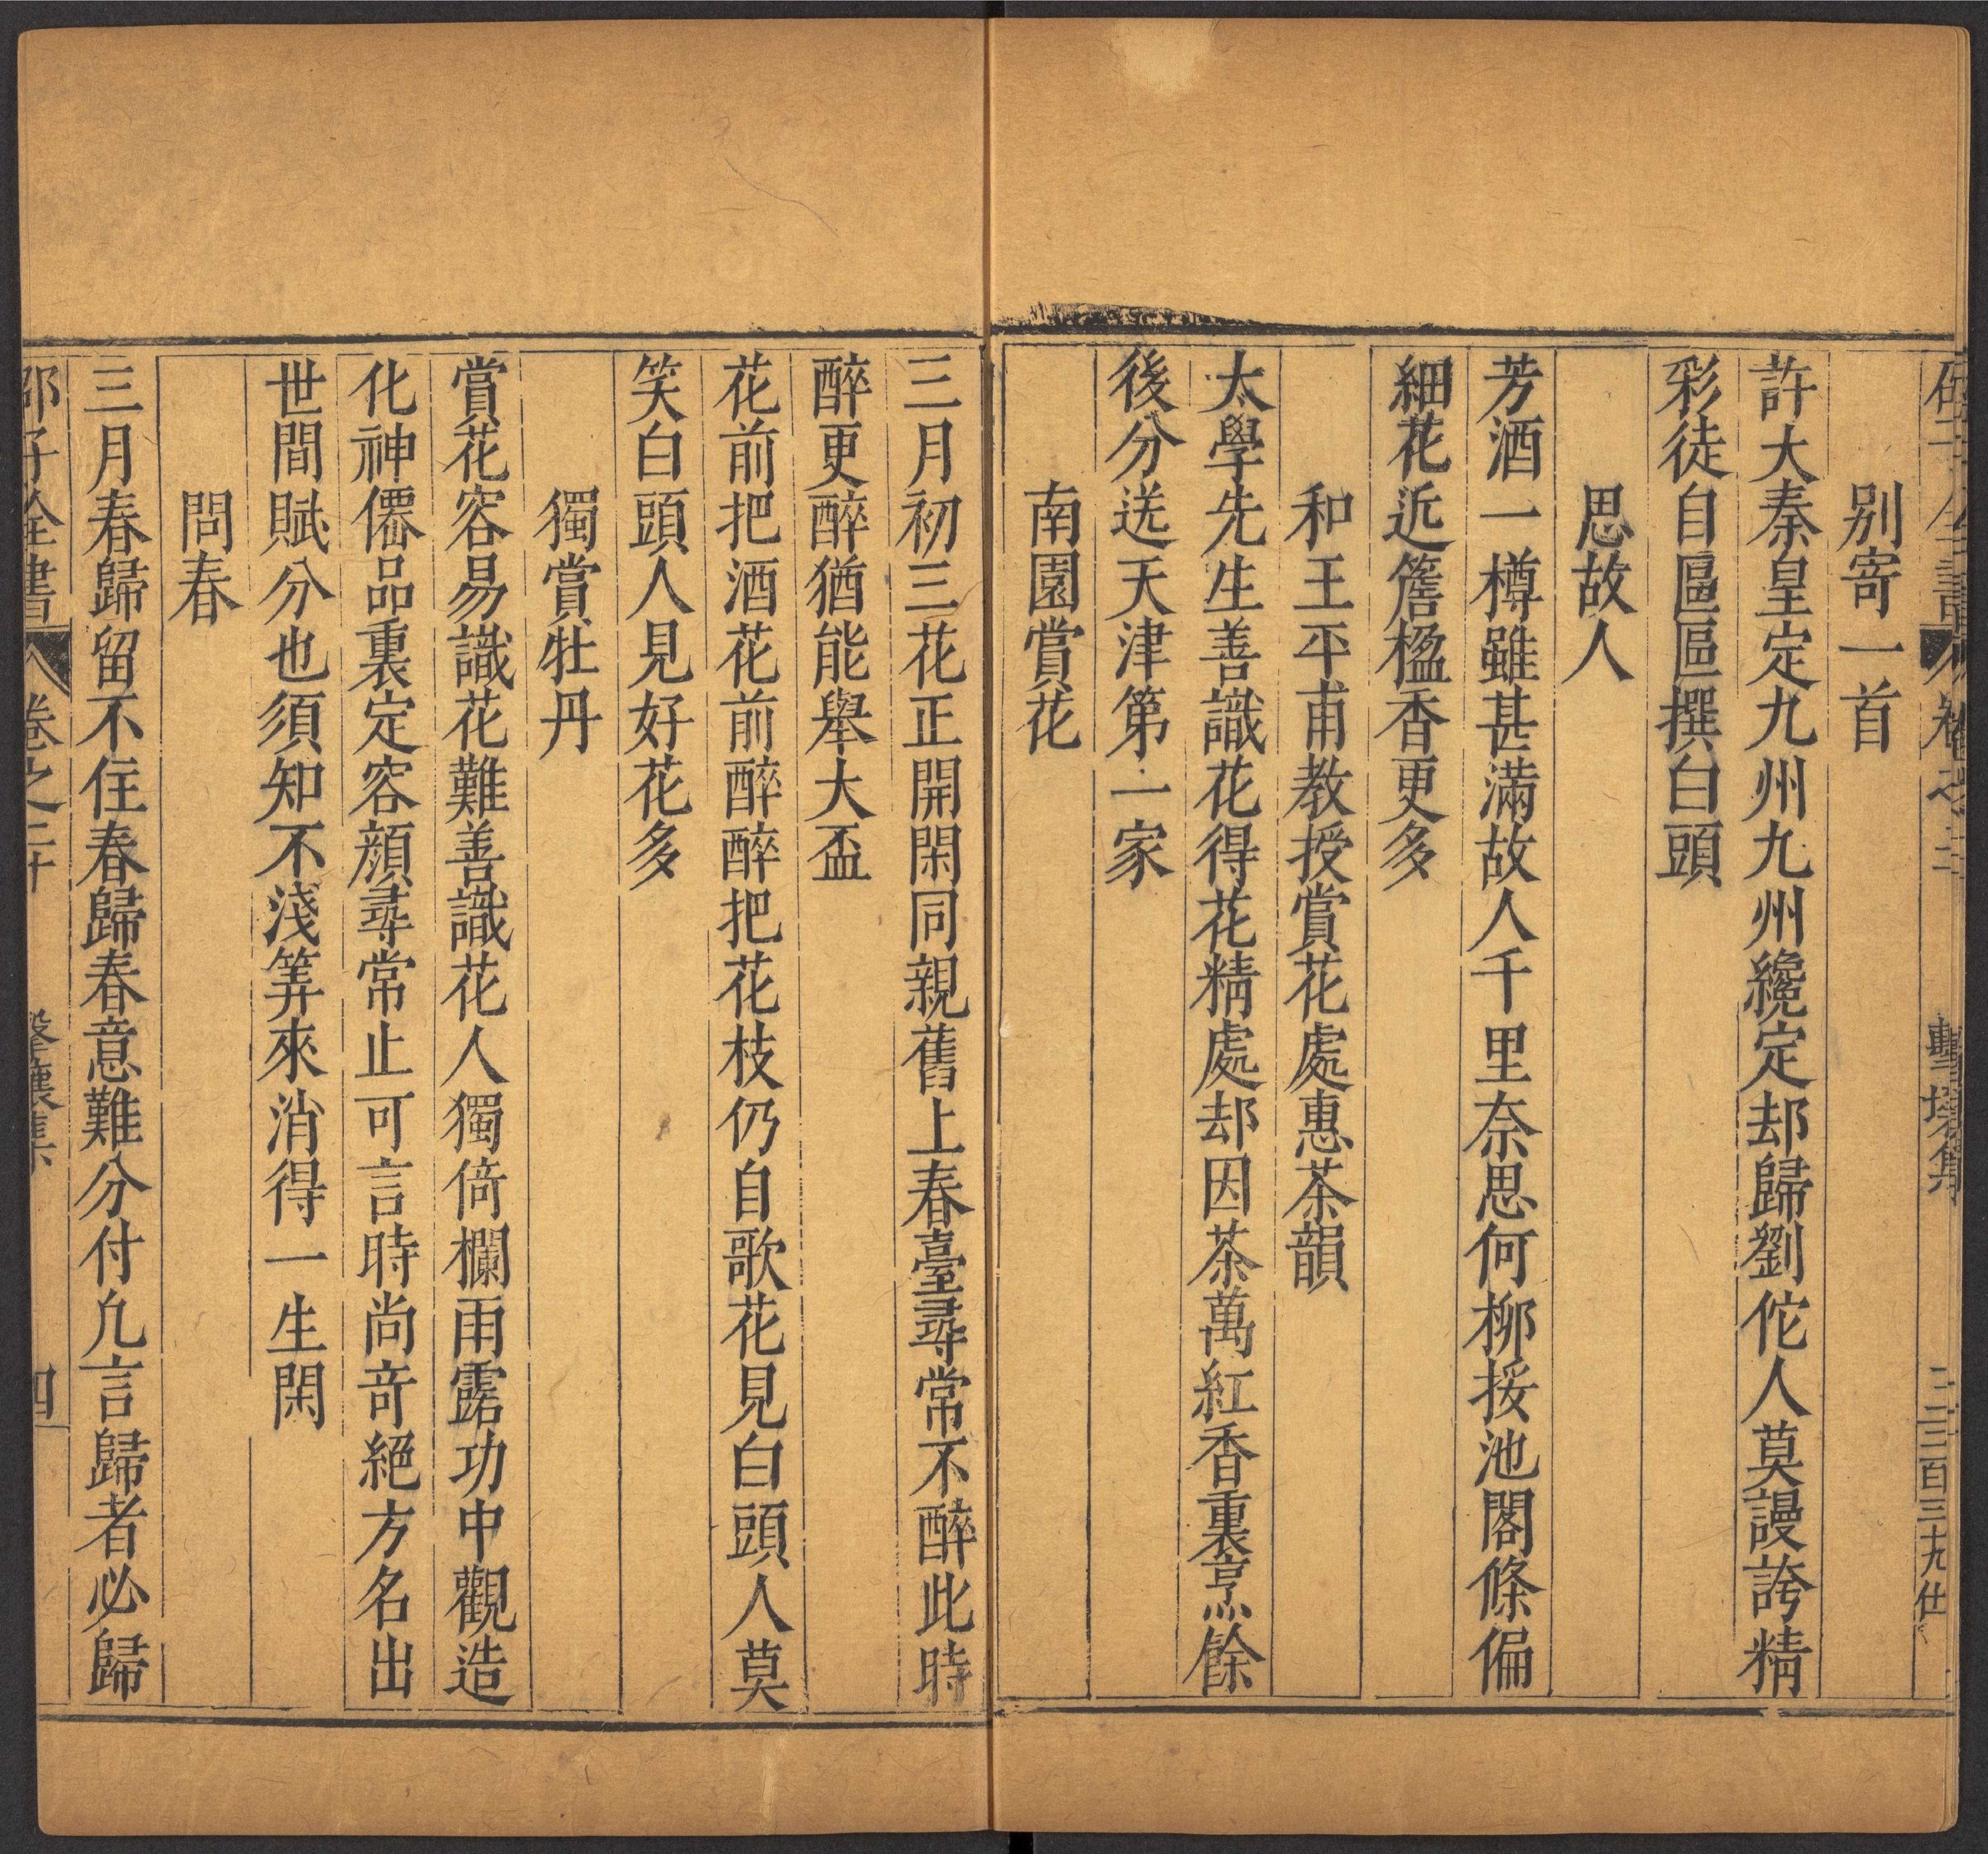 別寄一首
許大秦皇定九州九州纔定却歸劉佗人莫謾誇精
彩徒自區區撰白頭
思故人
芳酒一樽雖甚滿故人千里奈思何柳挼池閣條偏
細花近簷楹香更多
和王平甫教授賞花處惠茶韻
太學先生善識花得花精處却因茶萬紅香裏烹餘
後分送天津第一家
南園賞花
三月初三花正開閑同親舊上春臺尋常不醉此時
醉更醉猶能舉大盃
花前把酒花前醉醉把花枝仍自歌花見白頭人莫
笑白頭人見好花多
獨賞牡丹
賞花容易識花難善識花人獨倚欄雨露功中觀造
化神僊品裏定容顏尋常止可言時尚竒絕方名出
世間賦分也須知不淺筭來消得一生閑
問春
三月春歸留不住春歸春意難分付凢言歸者必歸
邵子全書 卷之二十 擊壤集 四